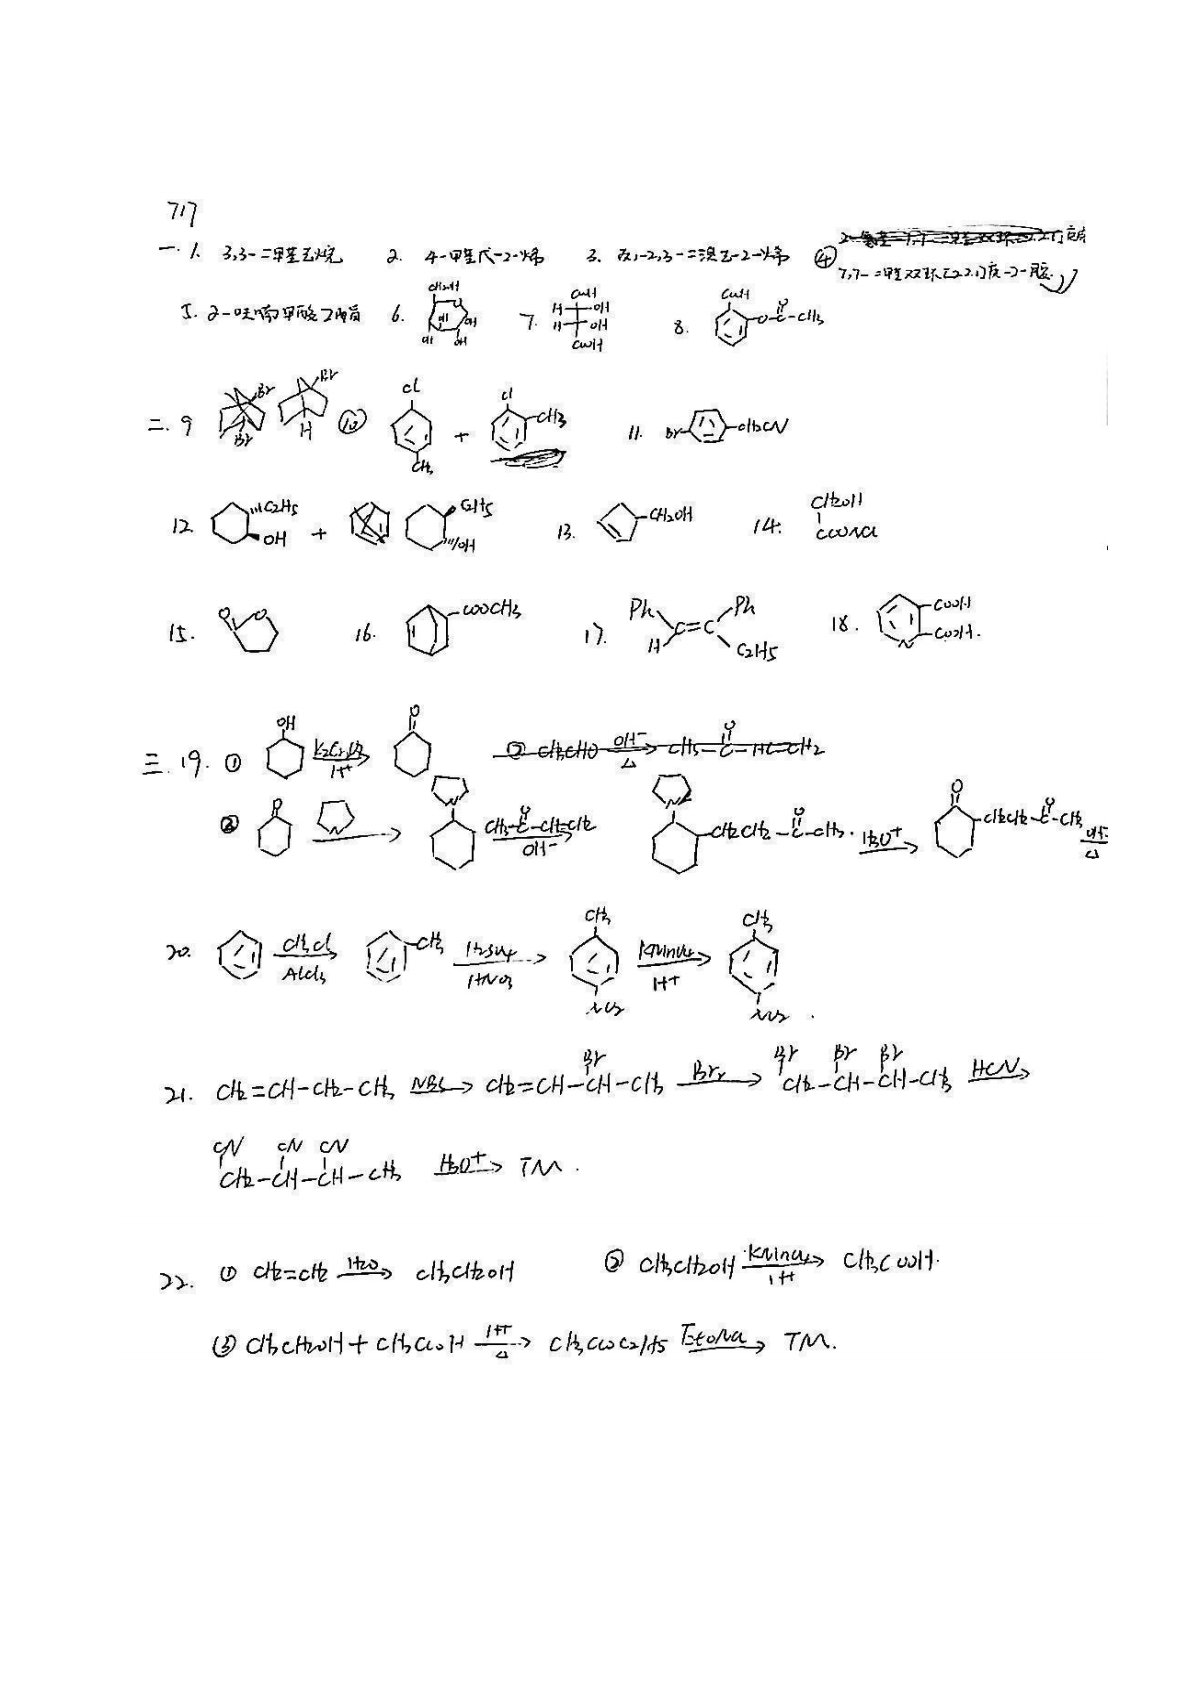 717
一. 1. 3,3-二甲基戊烷 2. 4-甲基戊-2-烯 3. 反-2,3-二溴-2-烯 ④
7,7-二甲基双环[2.2.1]庚-2-酮
5. 2-呋喃甲酸乙酯 6. CH2OH OH OH OH OH 7. COOH H OH H OH COOH 8. COOH O-C-CH3 O
二. 9 Br Br Br H ⑩ Cl CH3 + Cl CH3 11. Br CH2CN
12 C2H5 OH + C2H5 OH 13. CH2OH 14. CH2OH COONa
15. O O 16. COOCH3 17. Ph H C=C Ph C2H5 18. N COOH COOH.
三. 19. ① OH K2Cr2O7 H+ O ② CH3CHO OH- △ CH3-C-HC=CH2 O
② O N N CH3-C-CH=CH2 O OH- N CH2CH2-C-CH3. O H3O+ O CH2CH2-C-CH3 O OH- △
20. CH3Cl AlCl3 CH3 H2SO4 HNO3 CH3 NO2 KMnO4 H+ CH3 NO2.
21. CH2=CH-CH2-CH3 NBS CH2=CH-CH-CH3 Br Br2 CH2-CH-CH-CH3 Br Br Br HCN
CN CN CN CH2-CH-CH-CH3 H3O+ TM.
22. ① CH2=CH2 H2O CH3CH2OH ② CH3CH2OH KMnO4 H+ CH3COOH.
③ CH3CH2OH + CH3COOH H+ △ CH3COOC2H5 EtONa TM.